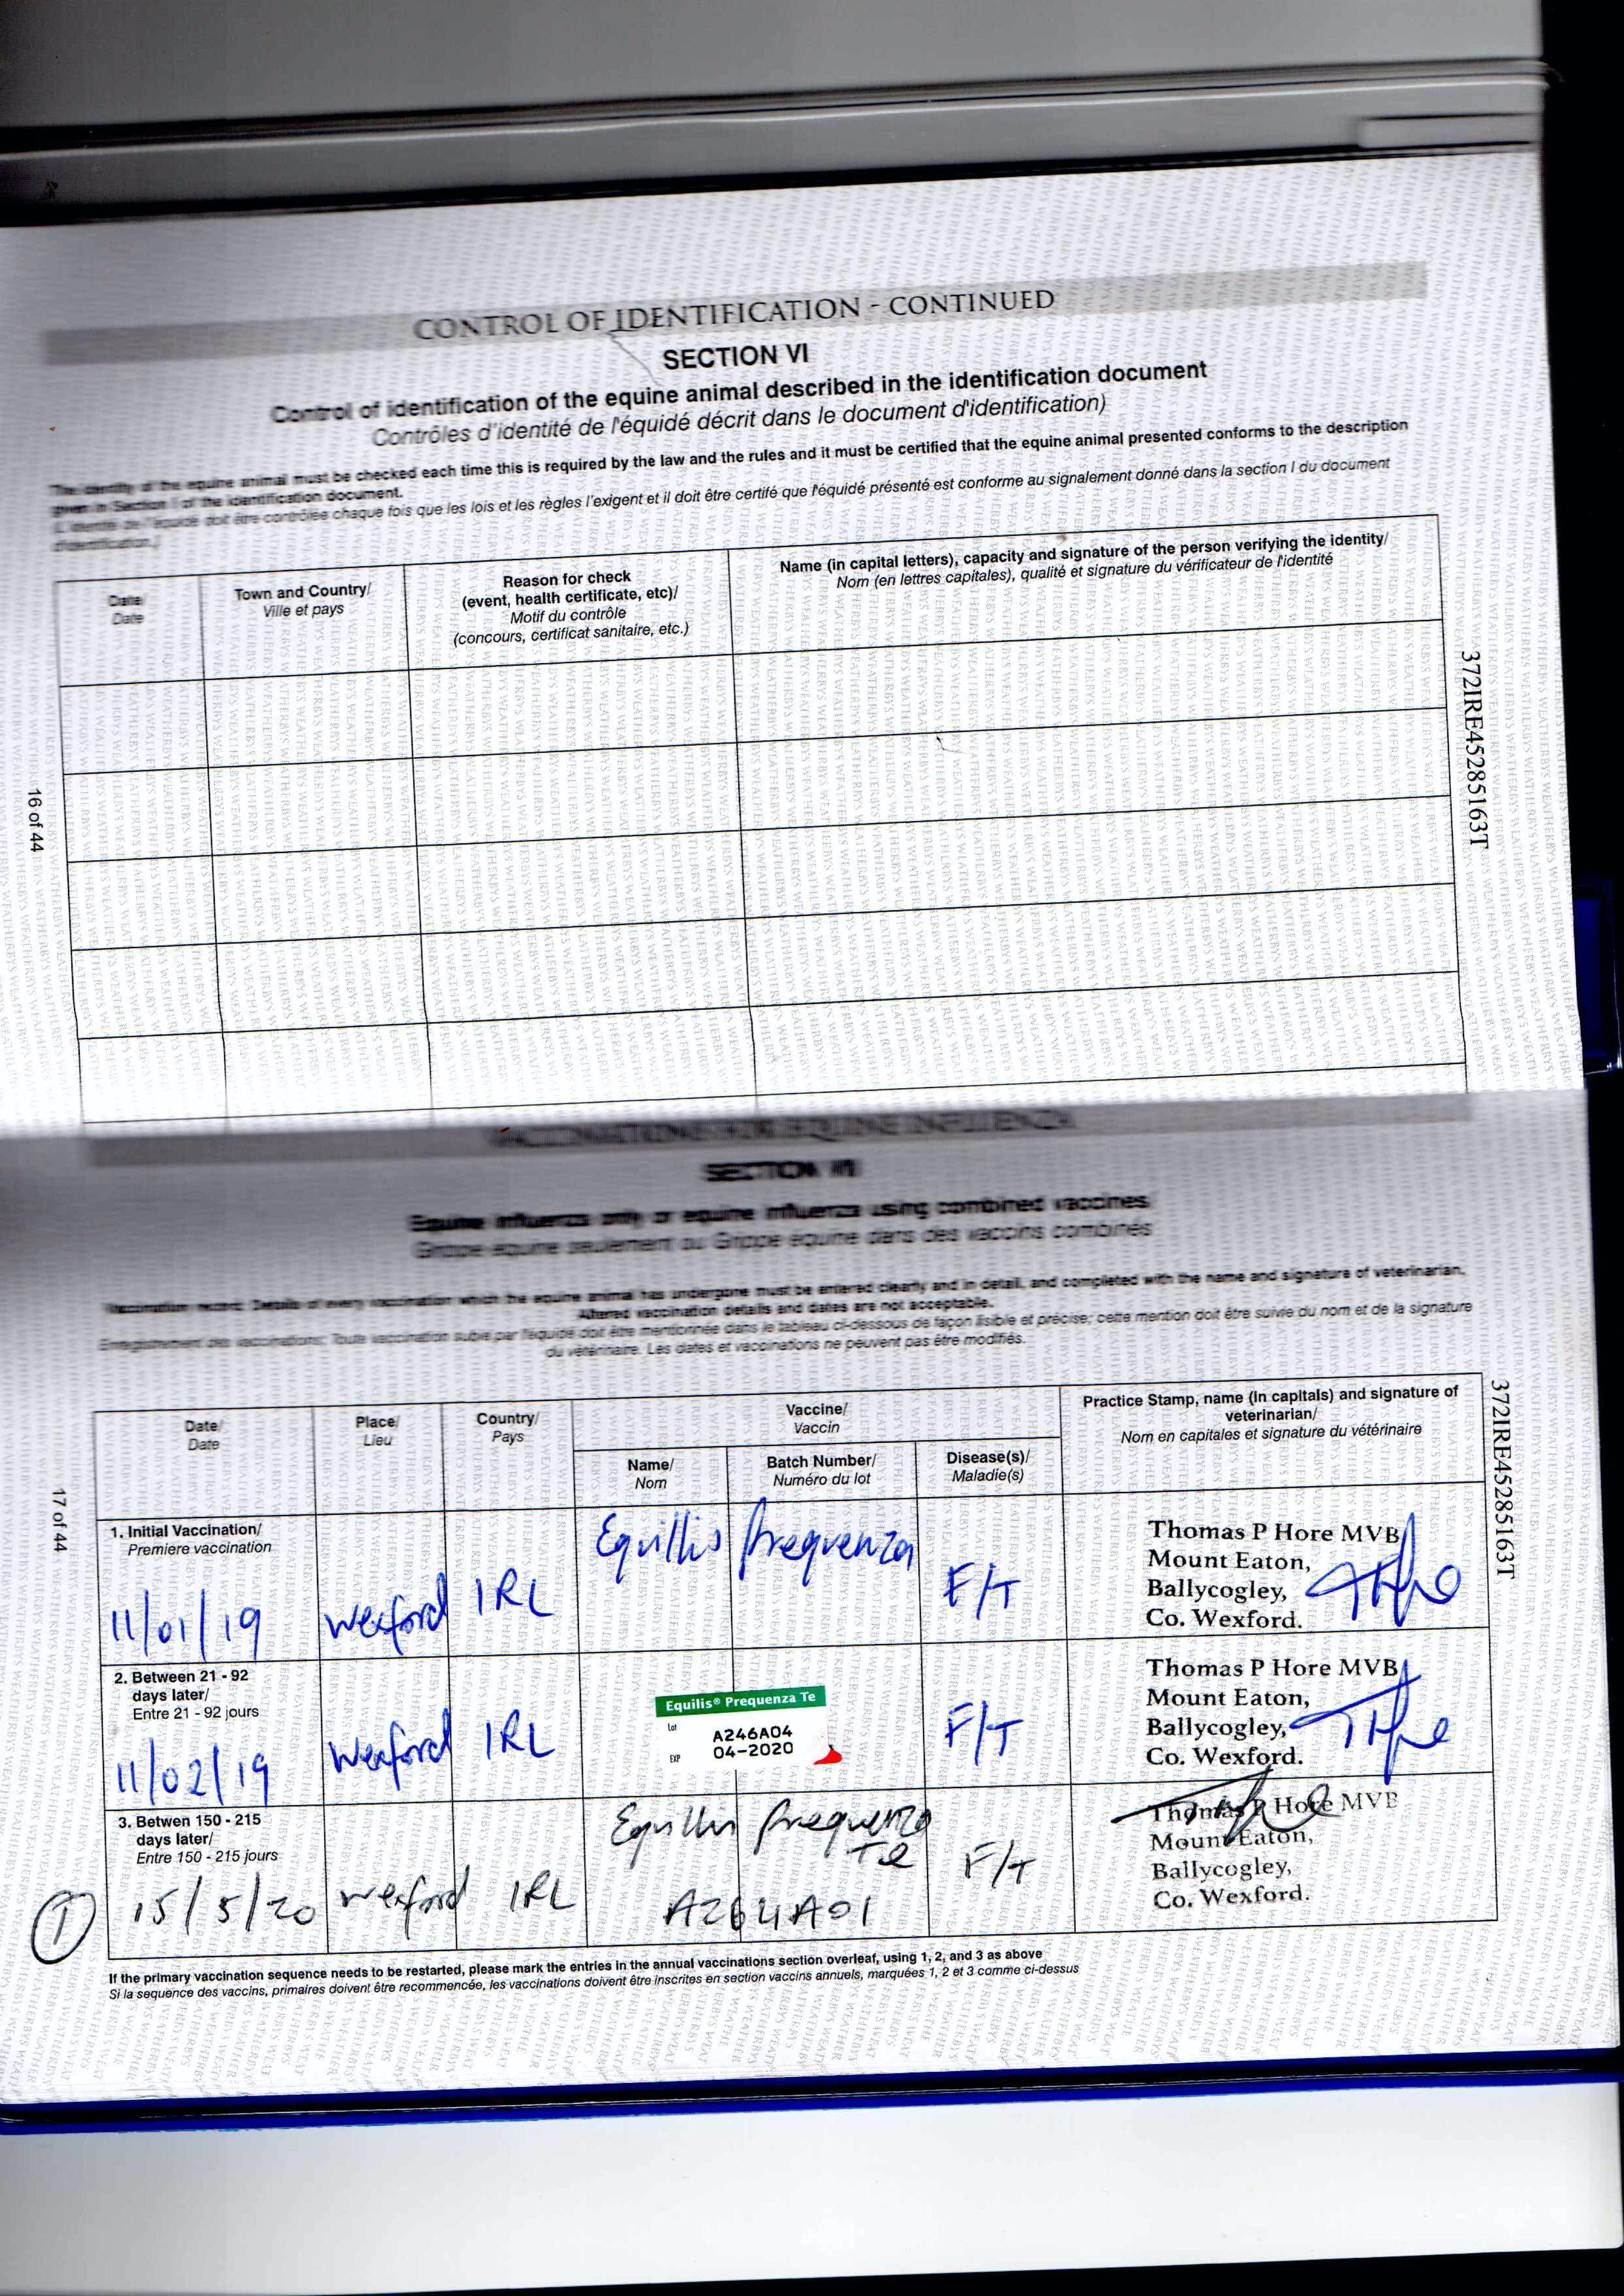 CONTROL OF IDENTIFICATION - CONTINUED
SECTION VI
Control of identification of the equine animal described in the identification document
Contrôles d'identité de l'équidé décrit dans le document d'identification)
The identity of the equine animal must be checked each time this is required by the law and the rules and it must be certified that the equine animal presented conforms to the description
given in Section I of the identification document.
(L'identité de l'équidé doit être contrôlée chaque fois que les lois et les règles l'exigent et il doit être certifé que l'équidé présenté est conforme au signalement donné dans la section I du document
d'identification.)
Date/
Date
Town and Country/
Ville et pays
Reason for check
(event, health certificate, etc)/
Motif du contrôle
(concours, certificat sanitaire, etc.)
Name (in capital letters), capacity and signature of the person verifying the identity/
Nom (en lettres capitales), qualité et signature du vérificateur de l'identité
372IRE45285163T
16 of 44
VACCINATIONS FOR EQUINE INFLUENZA
SECTION VII
Equine influenza only or equine influenza using combined vaccines
Grippe équine seulement ou Grippe équine dans des vaccins combinés
Vaccination record: Details of every vaccination which the equine animal has undergone must be entered clearly and in detail, and completed with the name and signature of veterinarian.
Altered vaccination details and dates are not acceptable.
Enregistrement des vaccinations: Toute vaccination subie par l'équidé doit être mentionnée dans le tableau ci-dessous de façon lisible et précise; cette mention doit être suivie du nom et de la signature
du vétérinaire. Les dates et vaccinations ne peuvent pas être modifiés.
Date/
Date
Place/
Lieu
Country/
Pays
Vaccine/
Vaccin
Name/
Nom
Batch Number/
Numéro du lot
Disease(s)/
Maladie(s)
Practice Stamp, name (in capitals) and signature of
veterinarian/
Nom en capitales et signature du vétérinaire
372IRE45285163T
17 of 44
1. Initial Vaccination/
Premiere vaccination
11/01/19 Wexford IRL Equillis Prequenza F/T
Thomas P Hore MVB
Mount Eaton,
Ballycogley,
Co. Wexford.
2. Between 21 - 92
days later/
Entre 21 - 92 jours
11/02/19 Wexford IRL
Equilis® Prequenza Te
Lot A246A04
EXP 04-2020
F/T
Thomas P Hore MVB
Mount Eaton,
Ballycogley,
Co. Wexford.
3. Betwen 150 - 215
days later/
Entre 150 - 215 jours
1 15/5/20 Wexford IRL
Equillis Prequenza
Te
A264A01
F/T
Thomas P Hore MVB
Mount Eaton,
Ballycogley,
Co. Wexford.
If the primary vaccination sequence needs to be restarted, please mark the entries in the annual vaccinations section overleaf, using 1, 2, and 3 as above
Si la sequence des vaccins, primaires doivent être recommencée, les vaccinations doivent être inscrites en section vaccins annuels, marquées 1, 2 et 3 comme ci-dessus